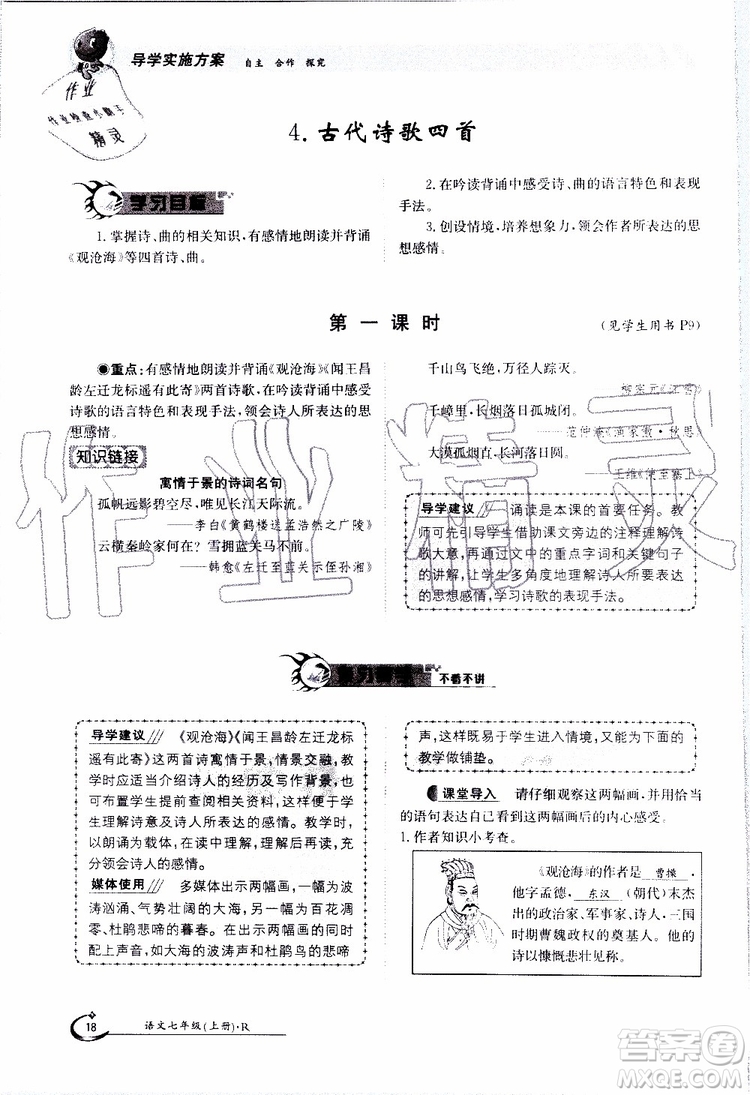 导学实施方案 自主 合作 探究
作业
作业检查小助手
精灵
4. 古代诗歌四首
学习目标
1. 掌握诗、曲的相关知识，有感情地朗读并背诵
《观沧海》等四首诗、曲。
2. 在吟读背诵中感受诗、曲的语言特色和表现
手法。
3. 创设情境，培养想象力，领会作者所表达的思
想感情。
第一课时
(见学生用书 P9)
◉重点：有感情地朗读并背诵《观沧海》《闻王昌
龄左迁龙标遥有此寄》两首诗歌，在吟读背诵中感受
诗歌的语言特色和表现手法，领会诗人所表达的思
想感情。
知识链接
寓情于景的诗词名句
孤帆远影碧空尽，唯见长江天际流。
——李白《黄鹤楼送孟浩然之广陵》
云横秦岭家何在？雪拥蓝关马不前。
——韩愈《左迁至蓝关示侄孙湘》
千山鸟飞绝，万径人踪灭。
——柳宗元《江雪》
千嶂里，长烟落日孤城闭。
——范仲淹《渔家傲·秋思》
大漠孤烟直，长河落日圆。
——王维《使至塞上》
导学建议 诵读是本课的首要任务。教
师可先引导学生借助课文旁边的注释理解诗
歌大意，再通过文中的重点字词和关键句子
的讲解，让学生多角度地理解诗人所要表达
的思想感情，学习诗歌的表现手法。
不看不讲
导学建议 《观沧海》《闻王昌龄左迁龙标
遥有此寄》这两首诗寓情于景，情景交融，教
学时应适当介绍诗人的经历及写作背景，也
可布置学生提前查阅相关资料，这样更便于
学生理解诗意及诗人的感情。教学时，要
以朗诵为本，在读中理解，在理解中读，读出
意境，读出诗人的感情。
媒体使用 多媒体出示两幅画，一幅为波
涛汹涌、气势壮阔的大海，一幅为杨花凋
零、杜鹃悲啼的暮春。在出示大海、杜鹃的同
时配上声音，如大海的波涛声和杜鹃的悲啼
声，这样既易于学生进入情境，又能为下面的
教学做铺垫。
课堂导入 请仔细观察这两幅画，并用恰当
的语句表达自己看到这两幅画后的内心感受。
1. 作者知识小考查。
《观沧海》的作者是 曹操 ，
他字孟德， 东汉 (朝代)末杰
出的政治家、军事家、诗人，三国
时期曹魏政权的奠基人。他的
诗以慷慨悲壮见称。
18 语文七年级(上册)·R
作业精灵
答案圈
MXQE.COM